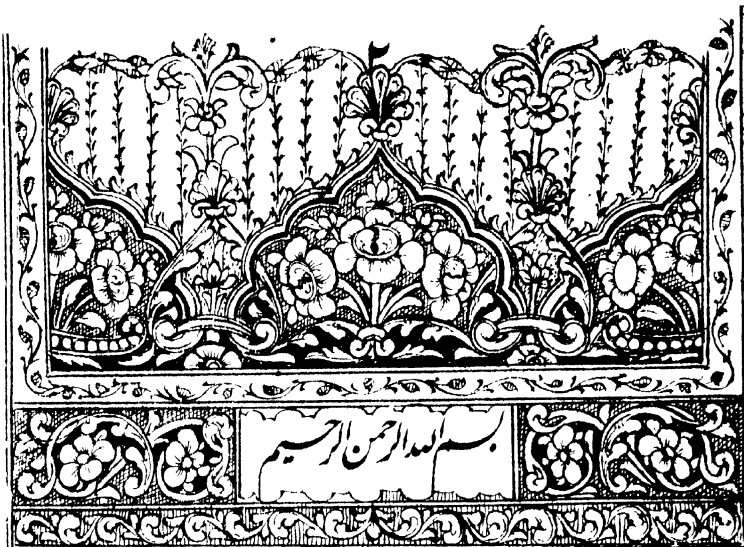 ٢
بسم الله الرحمن الرحیم